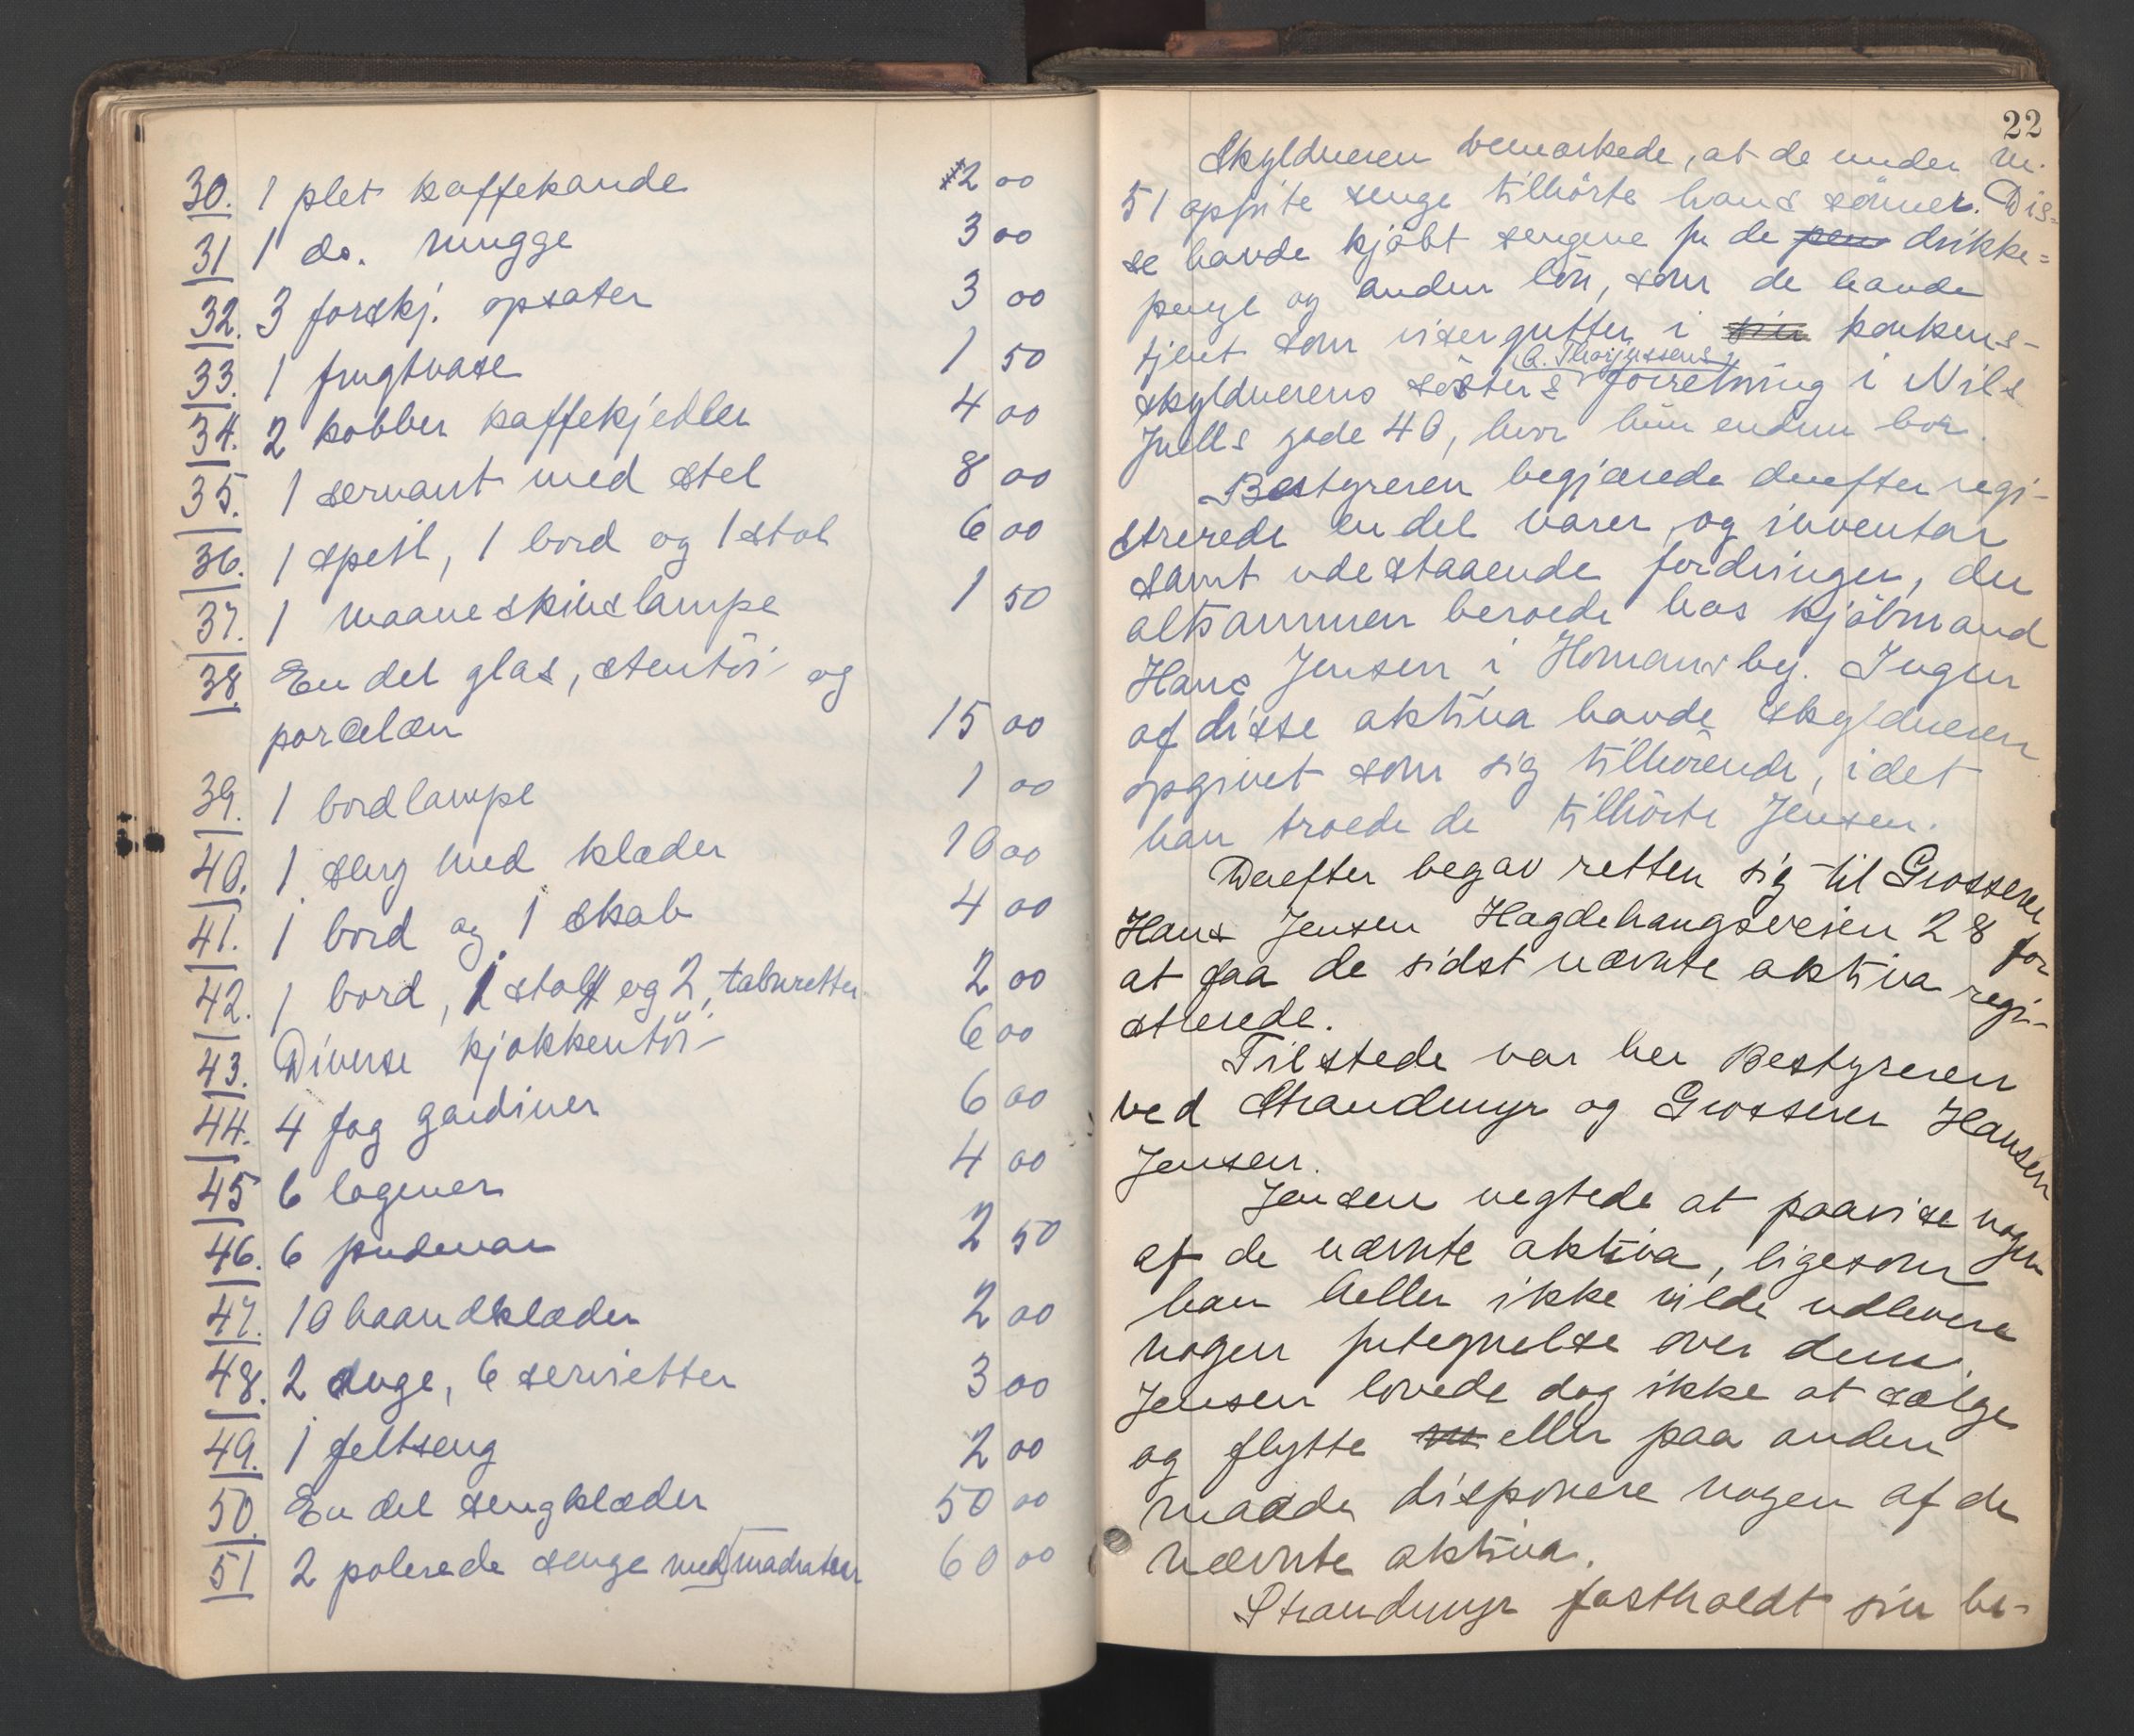 30. 1 plet kaffekande 2 00
31 1 do. mugge 3 00
32. 3 forskj. opsatser 3 00
33. 1 frugtvase 1 50
34. 2 kobber kaffekjedler 4 00
35. 1 servant med stel 8 00
36. 1 speil, 1 bord og 1 stol 6 00
37. 1 maaneskinslampe 1 50
38. En del glas, stentöi og
porcelæn 15 00
39. 1 bordlampe 1 00
40. 1 seng med klæder 10 00
41. 1 bord og 1 skab 4 00
42. 1 bord, 1 stol og 2 taburetter 2 00
43. Diverse kjøkkentöi 6 00
44. 4 fag gardiner 6 00
45 6 lagener 4 00
46. 6 pudevar 2 50
47. 10 haandklæder 2 00
48. 2 duge, 6 servietter 3 00
49. 1 feltseng 2 00
50. En del sengklæder 50 00
51 2 polerede senge med madratser 60 00
22
Skyldneren bemærkede, at de under nr.
51 opførte senge tilhörte hans sönner. Dis=
se havde kjöbt sengene for de pen drikke=
penge og anden lön, som de havde
tjent som visergutter i sin konkurs-
A. Thorjussens
skyldnerens sösters forretning i Nils
Juells gade 40, hvor hun endnu bor.
Bestyreren begjærede derefter regi-
strerede en del varer og inventar
samt udestaaende fordringer, der
altsammen beroede hos kjöbmand
Hans Jensen i Homansby. Ingen
af disse aktiva havde skyldneren
opgivet som sig tilhörende, idet
han troede de tilhörte Jensen.
Derefter begav retten sig til Grosserer
Hans Jensen Hagdehaugsveien 28 for
at faa de sidst nævnte aktiva regi-
strerede.
Tilstede var her Bestyreren
ved Strandmyr og Grosserer Hansen
Jensen.
Jensen negtede at paavise nogen
af de nævnte aktiva, ligesom
han heller ikke vilde udlevere
nogen fortegnelse over dem.
Jensen lovede dog ikke at sælge
og flytte eller paa anden
maade disponere nogen af de
nævnte aktiva.
Strandmyr fastholdt sin be-